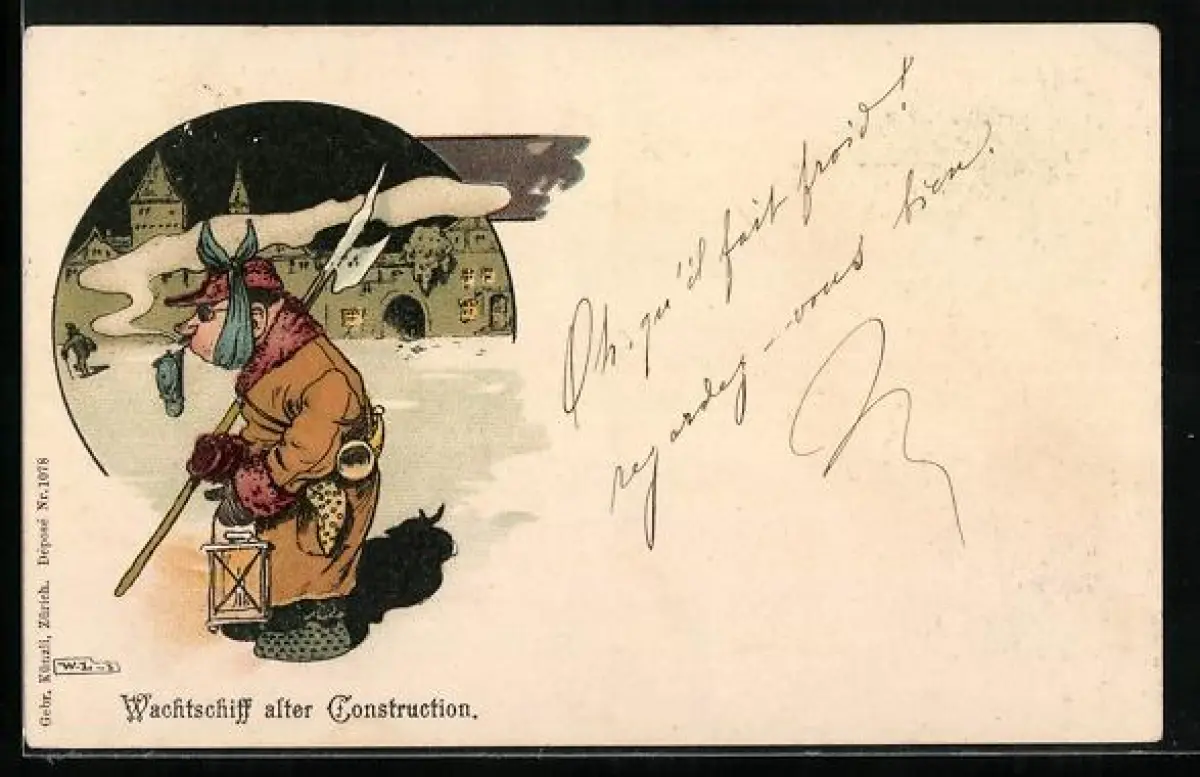 Oh. qu'il fait froid!
regardez-vous bien.
Gebr. Künzli, Zürich. Déposé Nr. 1078
Wachtschiff alter Construction.